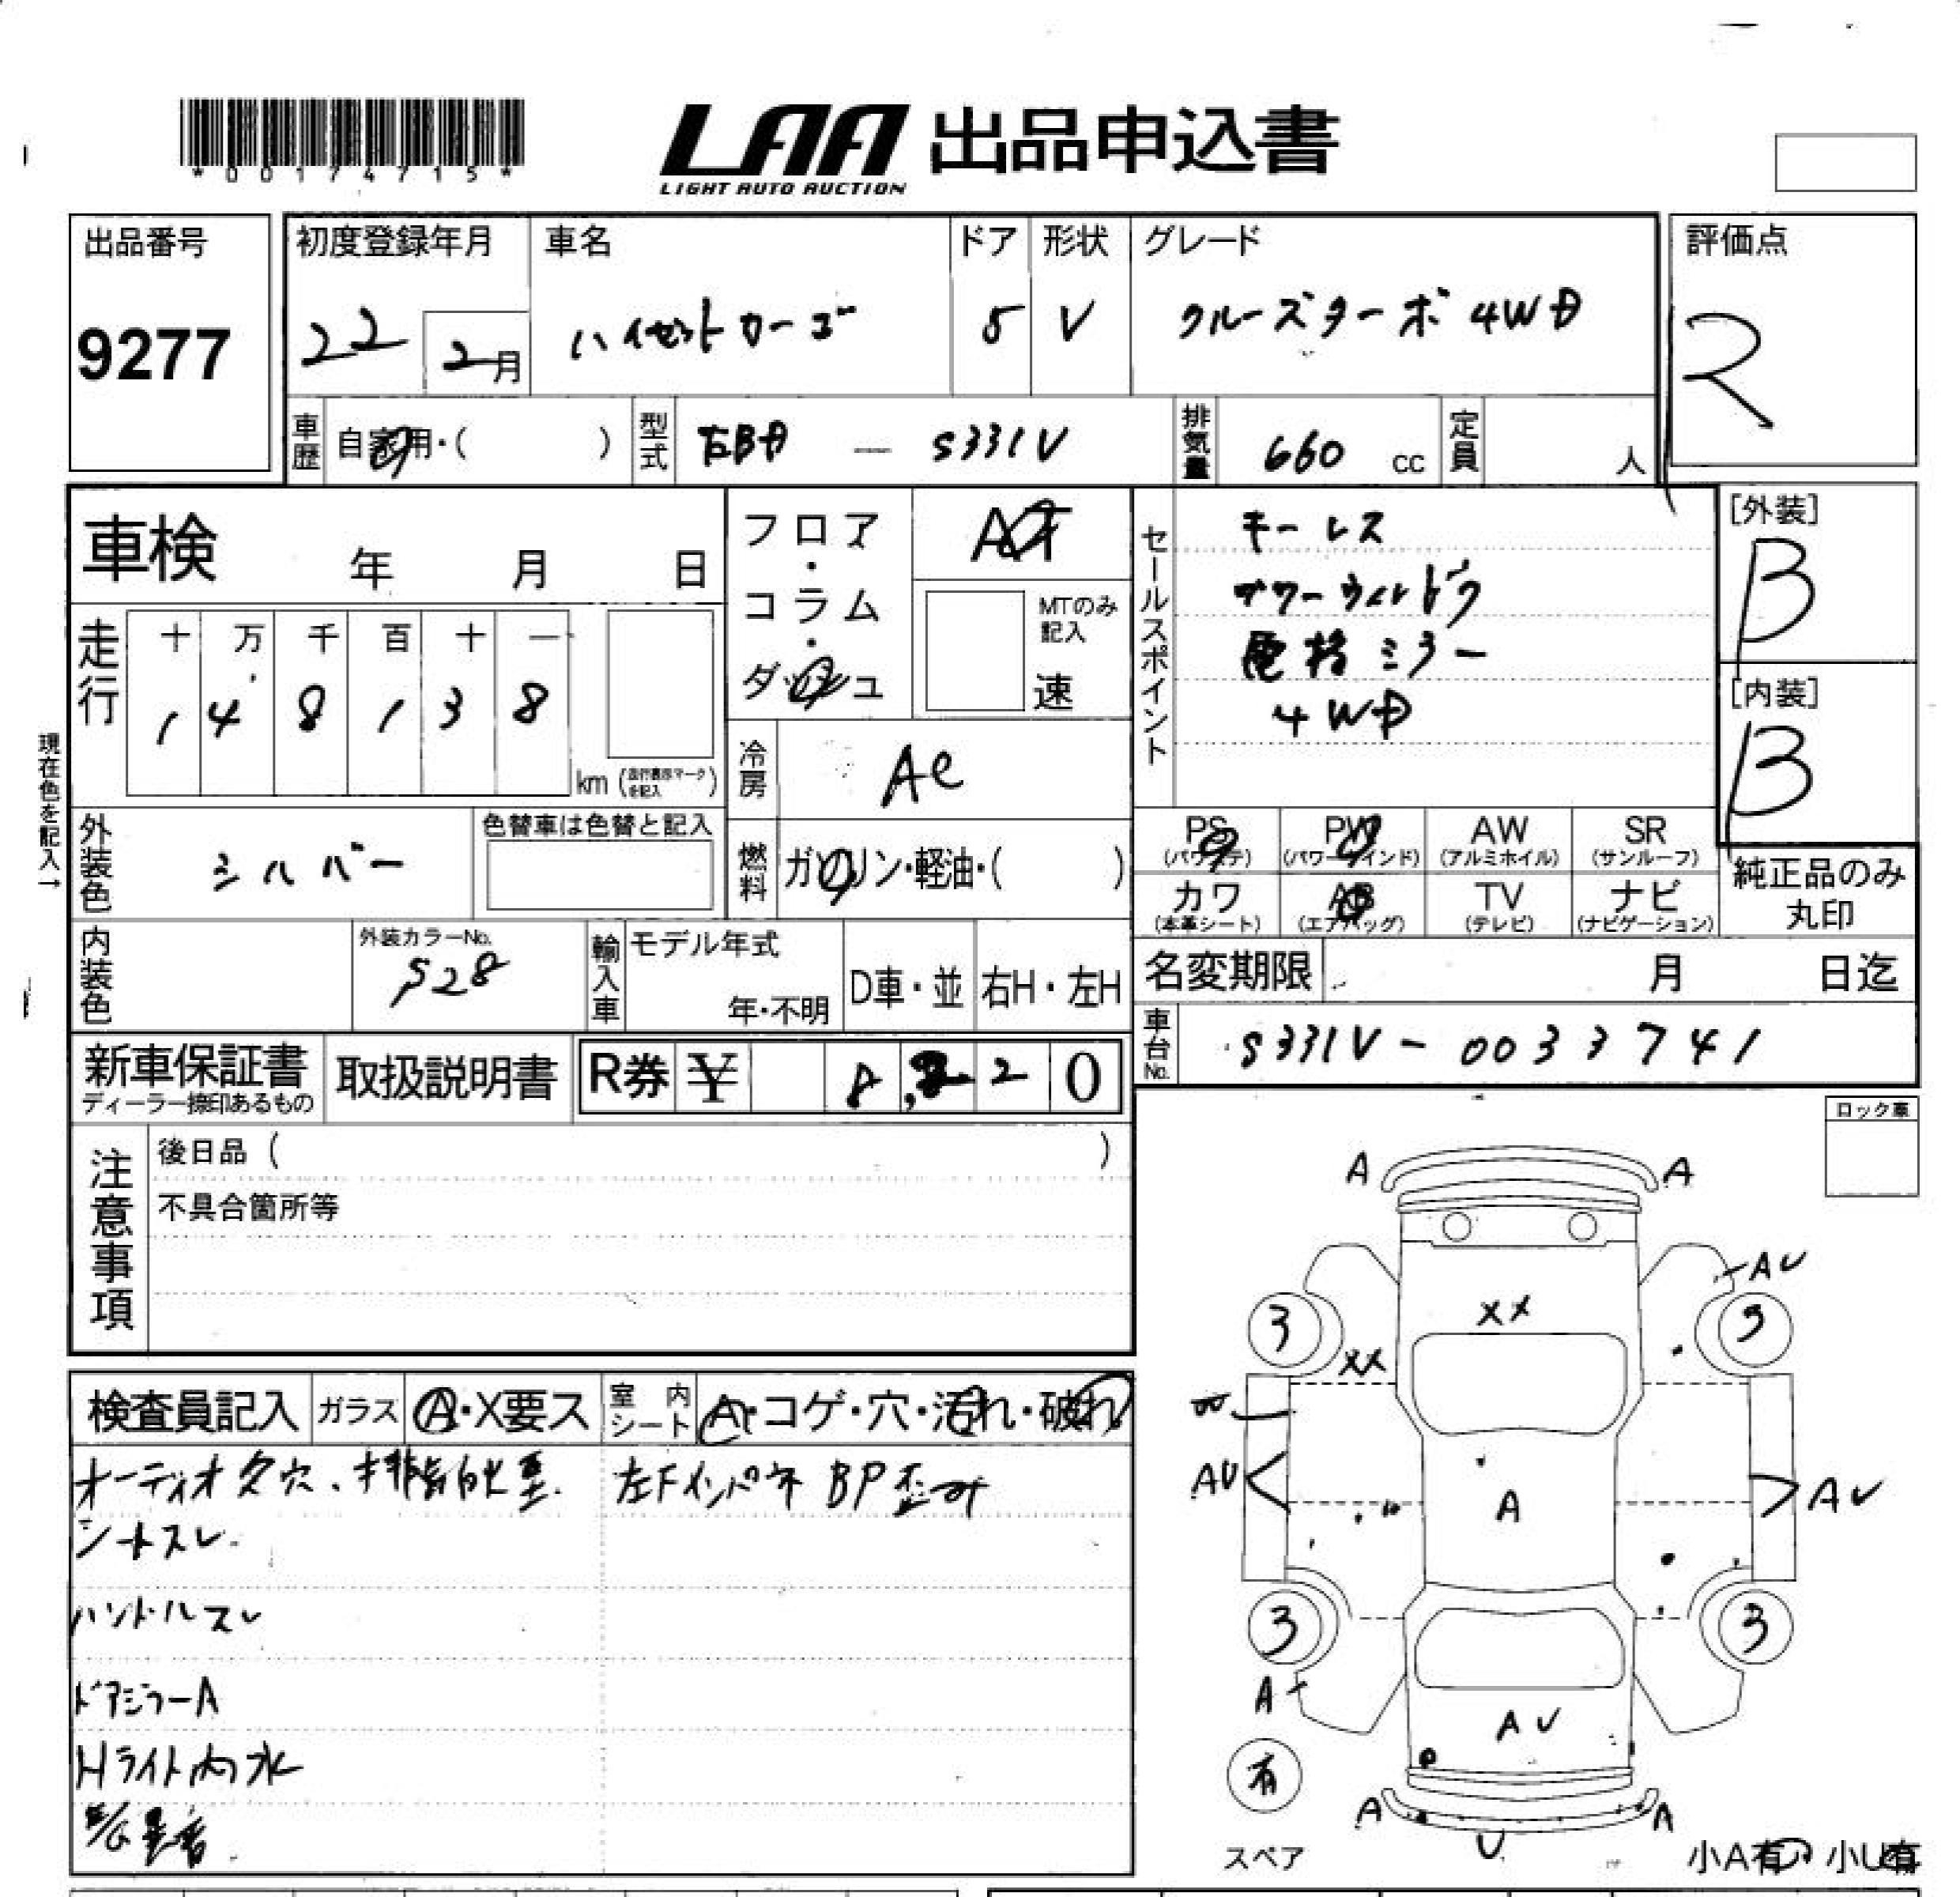 *00174715*
LAA 出品申込書
LIGHT AUTO AUCTION
出品番号
9277
初度登録年月
22 2月
車名
ハイゼットカーゴ
ドア
5
形状
V
グレード
クルーズターボ 4WD
評価点
R
車歴 自家用・( )
型式 EBD — S331V
排気量 660 cc
定員 人
車検 年 月 日
フロア・コラム・ダッシュ
AT
MTのみ記入
速
セールスポイント
キーレス
パワーウィンドウ
電格ミラー
4WD
[外装]
B
[内装]
B
走行
十 万 千 百 十 一
1 4 8 1 3 8
km (走行表示マークを記入)
現在色を記入→
冷房 AC
外装色 シルバー
色替車は色替と記入
燃料 ガソリン・軽油・( )
PS (パワステ)
PW (パワーウインド)
AW (アルミホイル)
SR (サンルーフ)
カワ (本革シート)
AB (エアバッグ)
TV (テレビ)
ナビ (ナビゲーション)
純正品のみ丸印
内装色
外装カラーNo.
S28
輸入車
モデル年式
年・不明
D車・並
右H・左H
名変期限 月 日迄
車台No. S331V - 0033741
新車保証書
ディーラー捺印あるもの
取扱説明書
R券 ¥ 8,220
ロック車
注意事項
後日品 ( )
不具合箇所等
検査員記入
ガラス A・X要ス
室内シート A・コゲ・穴・汚れ・破れ
オーディオ欠穴、 左Fインパネ BP歪み
シートスレ
ハンドルスレ
ドアミラーA
Hライト内水
A A
AU
XX
3 3
XX
AU AU
A
3 3
A
AU
有
スペア
A A
U
小A有 小U有